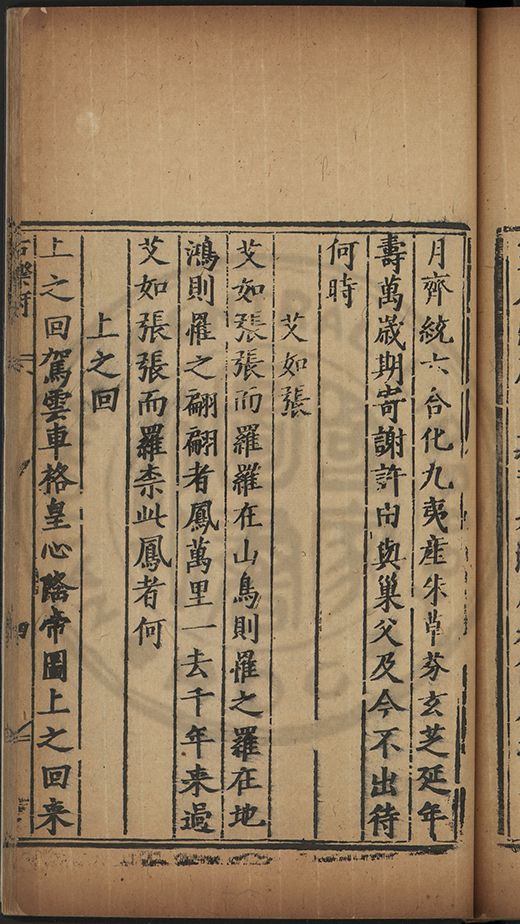 月齊統六合化九夷產朱草芬玄芝延年
壽萬歲期寄謝許由與巢父及今不出待
何時
艾如張
艾如張張而羅羅在山鳥則罹之羅在地
鴻則罹之翩翩者鳳萬里一去千年來過
艾如張張而羅柰此鳳者何
上之回
上之回駕雲車格皇心隆帝圖上之回來
古樂府